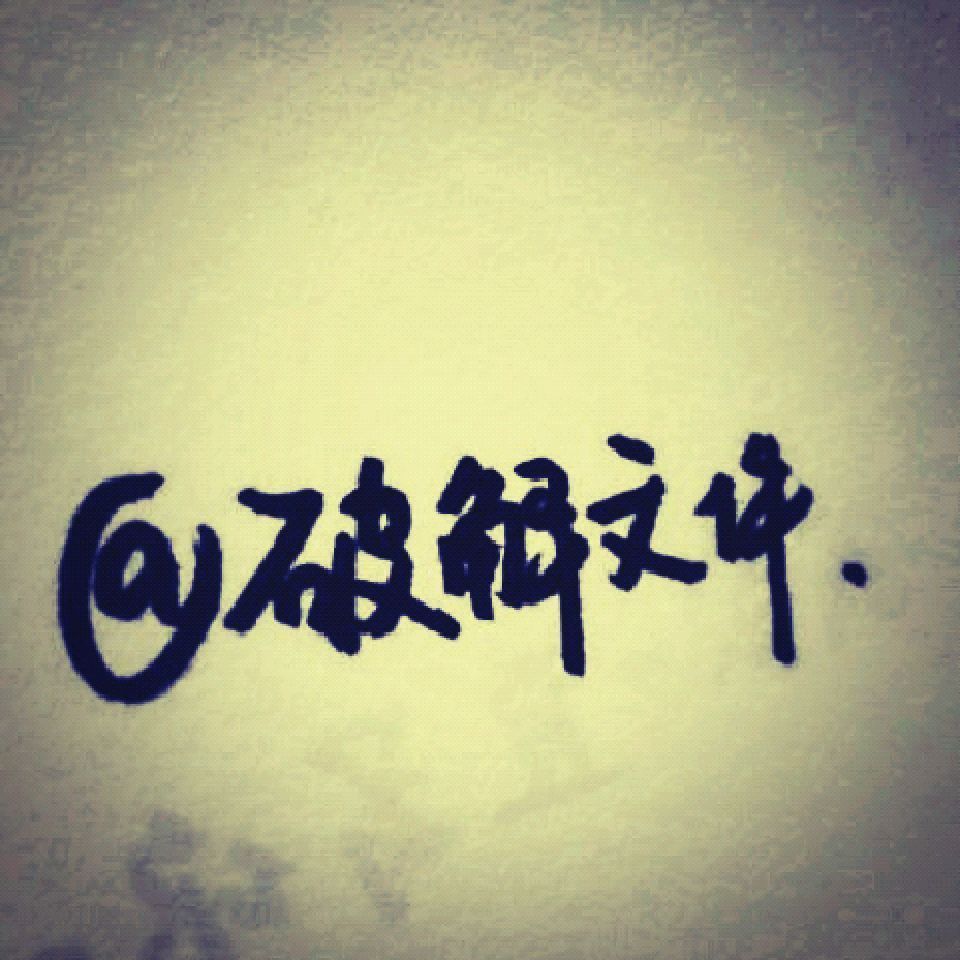 @破解文件.